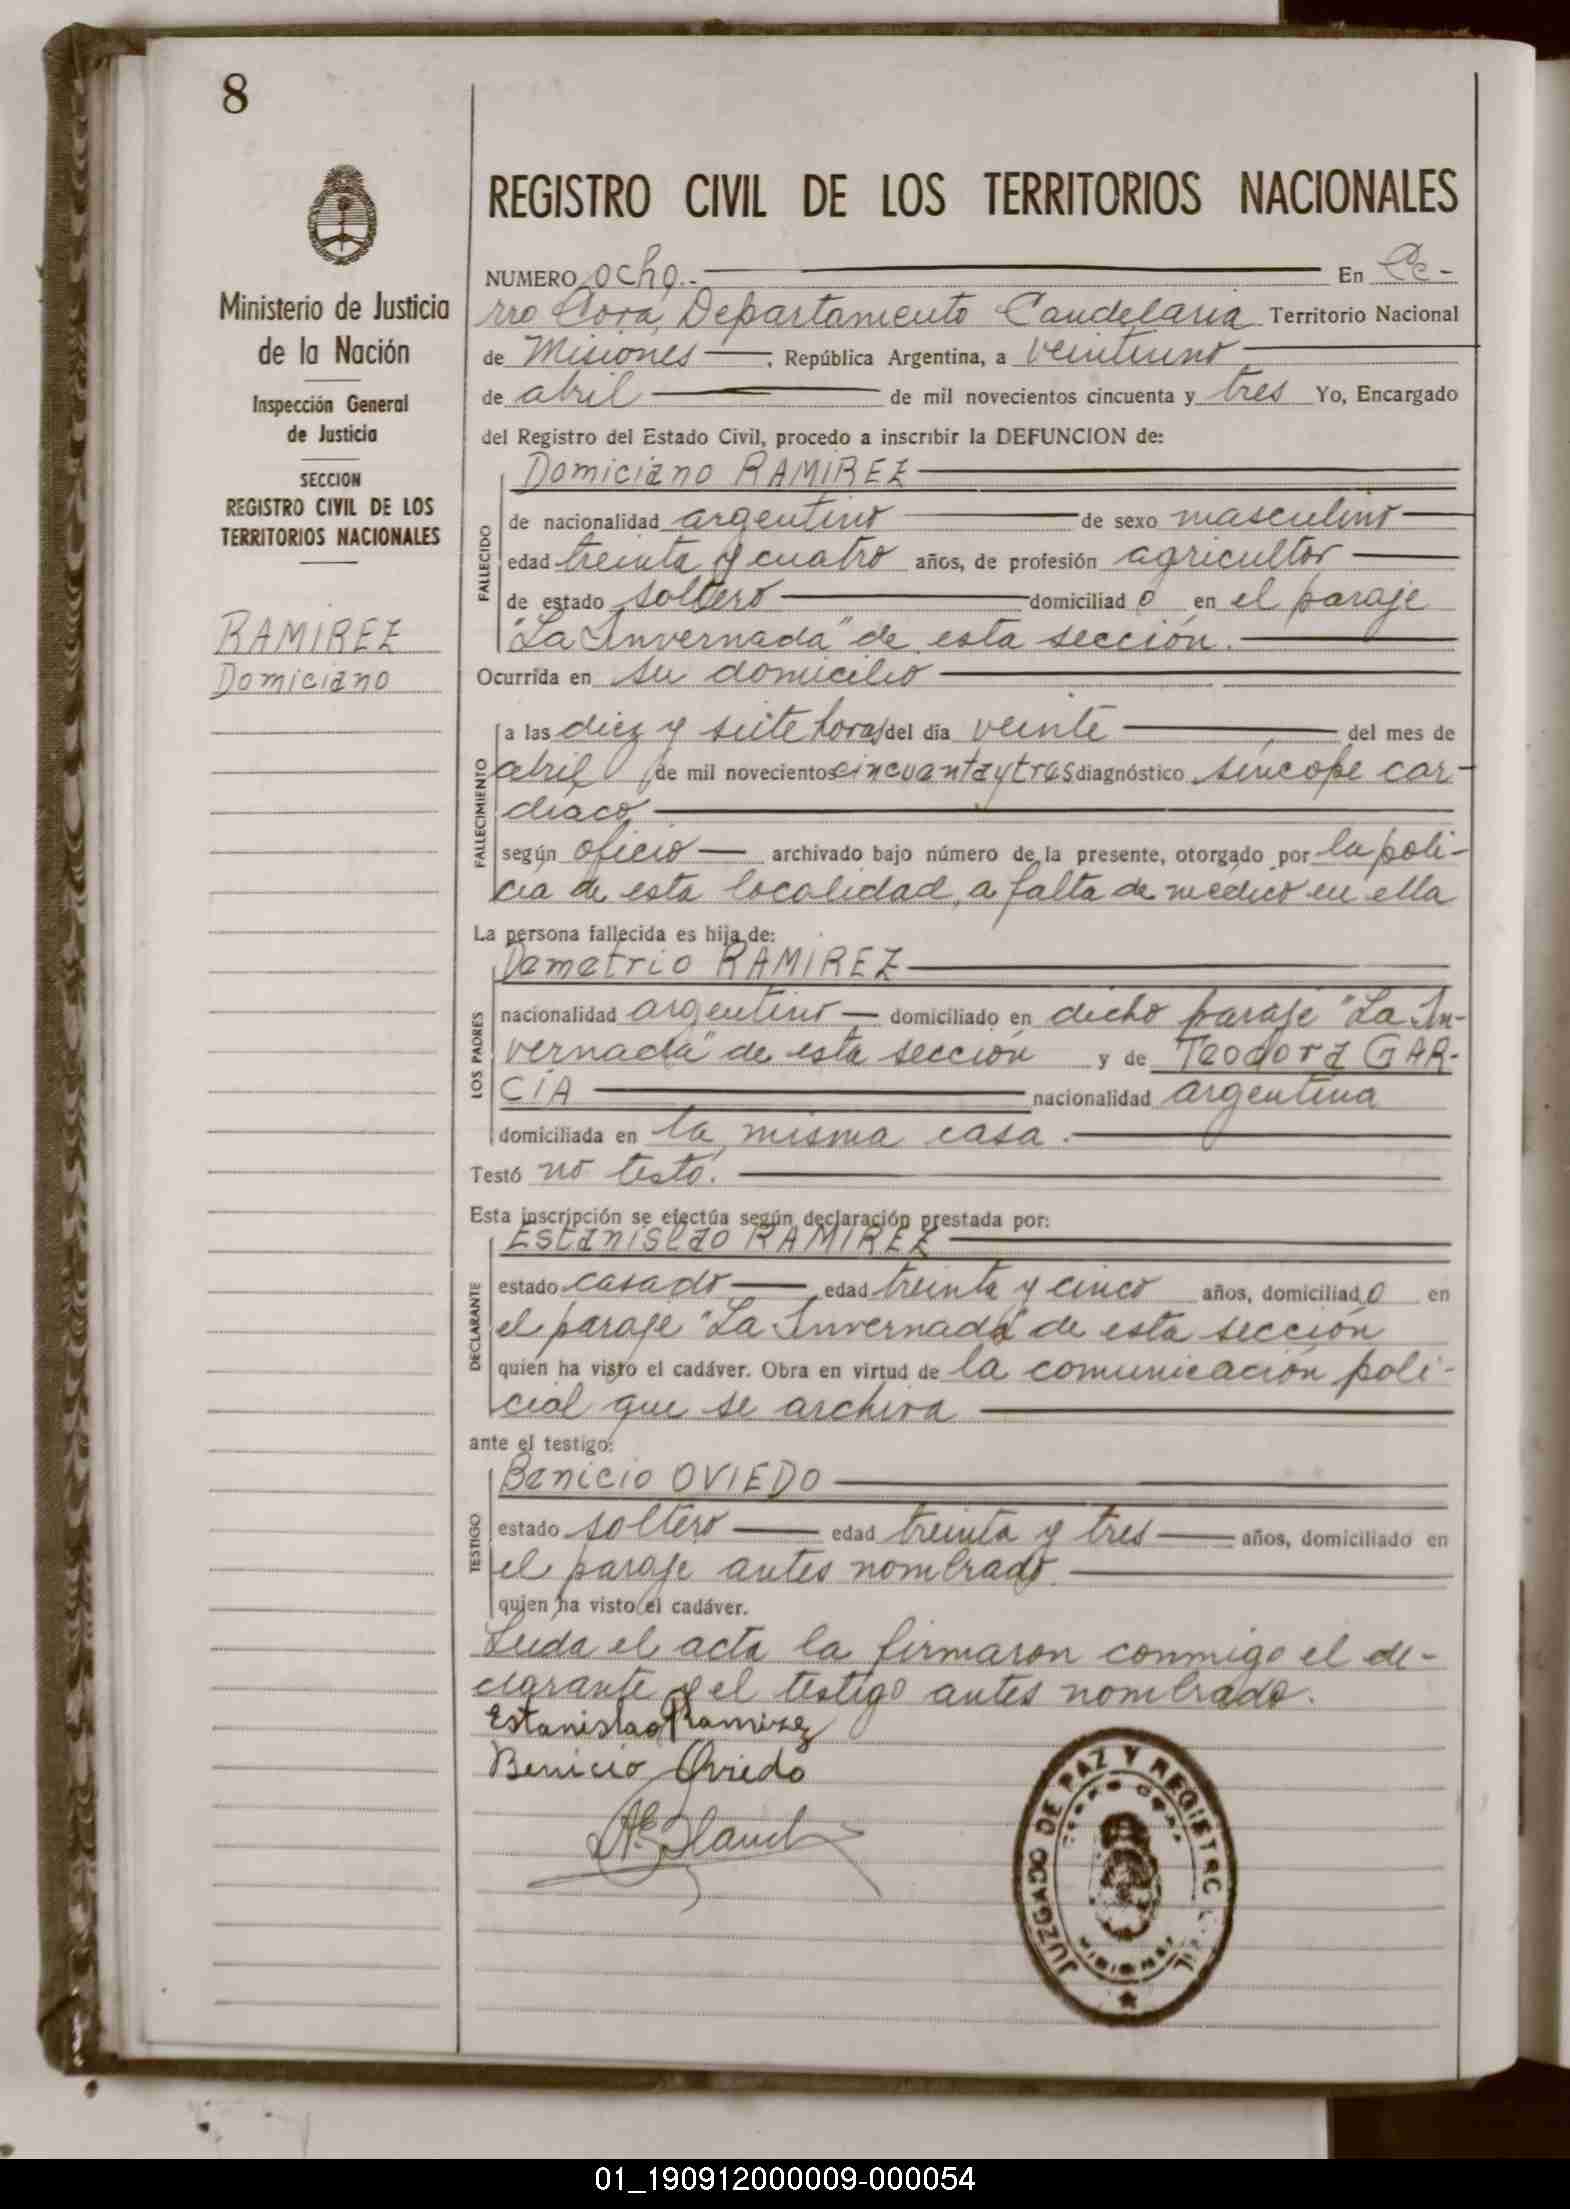 8
Ministerio de Justicia
de la Nación
Inspección General
de Justicia
SECCION
REGISTRO CIVIL DE LOS
TERRITORIOS NACIONALES
RAMIREZ
Domiciano
REGISTRO CIVIL DE LOS TERRITORIOS NACIONALES
NUMERO ocho.- En Ce-
rro Corá, Departamento Candelaria Territorio Nacional
de Misiones ; República Argentina, a veintiuno
de abril de mil novecientos cincuenta y tres Yo, Encargado
del Registro del Estado Civil, procedo a inscribir la DEFUNCION de:
Domiciano RAMIREZ
FALLECIDO
de nacionalidad argentino de sexo masculino
edad treinta y cuatro años, de profesión agricultor
de estado soltero domiciliad o en el paraje
"La Invernada" de esta sección.
Ocurrida en su domicilio
FALLECIMIENTO
a las diez y siete horas del día veinte del mes de
abril de mil novecientos cincuenta y tres diagnóstico síncope car-
díaco
según oficio archivado bajo número de la presente, otorgado por la poli-
cía de esta localidad, a falta de médico en ella
La persona fallecida es hija de:
Demetrio RAMIREZ
LOS PADRES
nacionalidad argentino domiciliado en dicho paraje "La In-
vernada" de esta sección y de Teodora GAR-
CÍA nacionalidad argentina
domiciliada en la misma casa.
Testó no testó.
Esta inscripción se efectúa según declaración prestada por:
Estanislao RAMIREZ
DECLARANTE
estado casado edad treinta y cinco años, domiciliad o en
el paraje "La Invernada" de esta sección
quien ha visto el cadáver. Obra en virtud de la comunicación poli-
cial que se archiva
ante el testigo:
Benicio OVIEDO
TESTIGO
estado soltero edad treinta y tres años, domiciliado en
el paraje antes nombrado.
quien ha visto el cadáver.
Leída el acta la firmaron conmigo el de-
clarante y el testigo antes nombrado.
Estanislao Ramirez
Benicio Oviedo
JUZGADO DE PAZ Y REGISTRO CIVIL
CERRO CORA
MISIONES
01_190912000009-000054